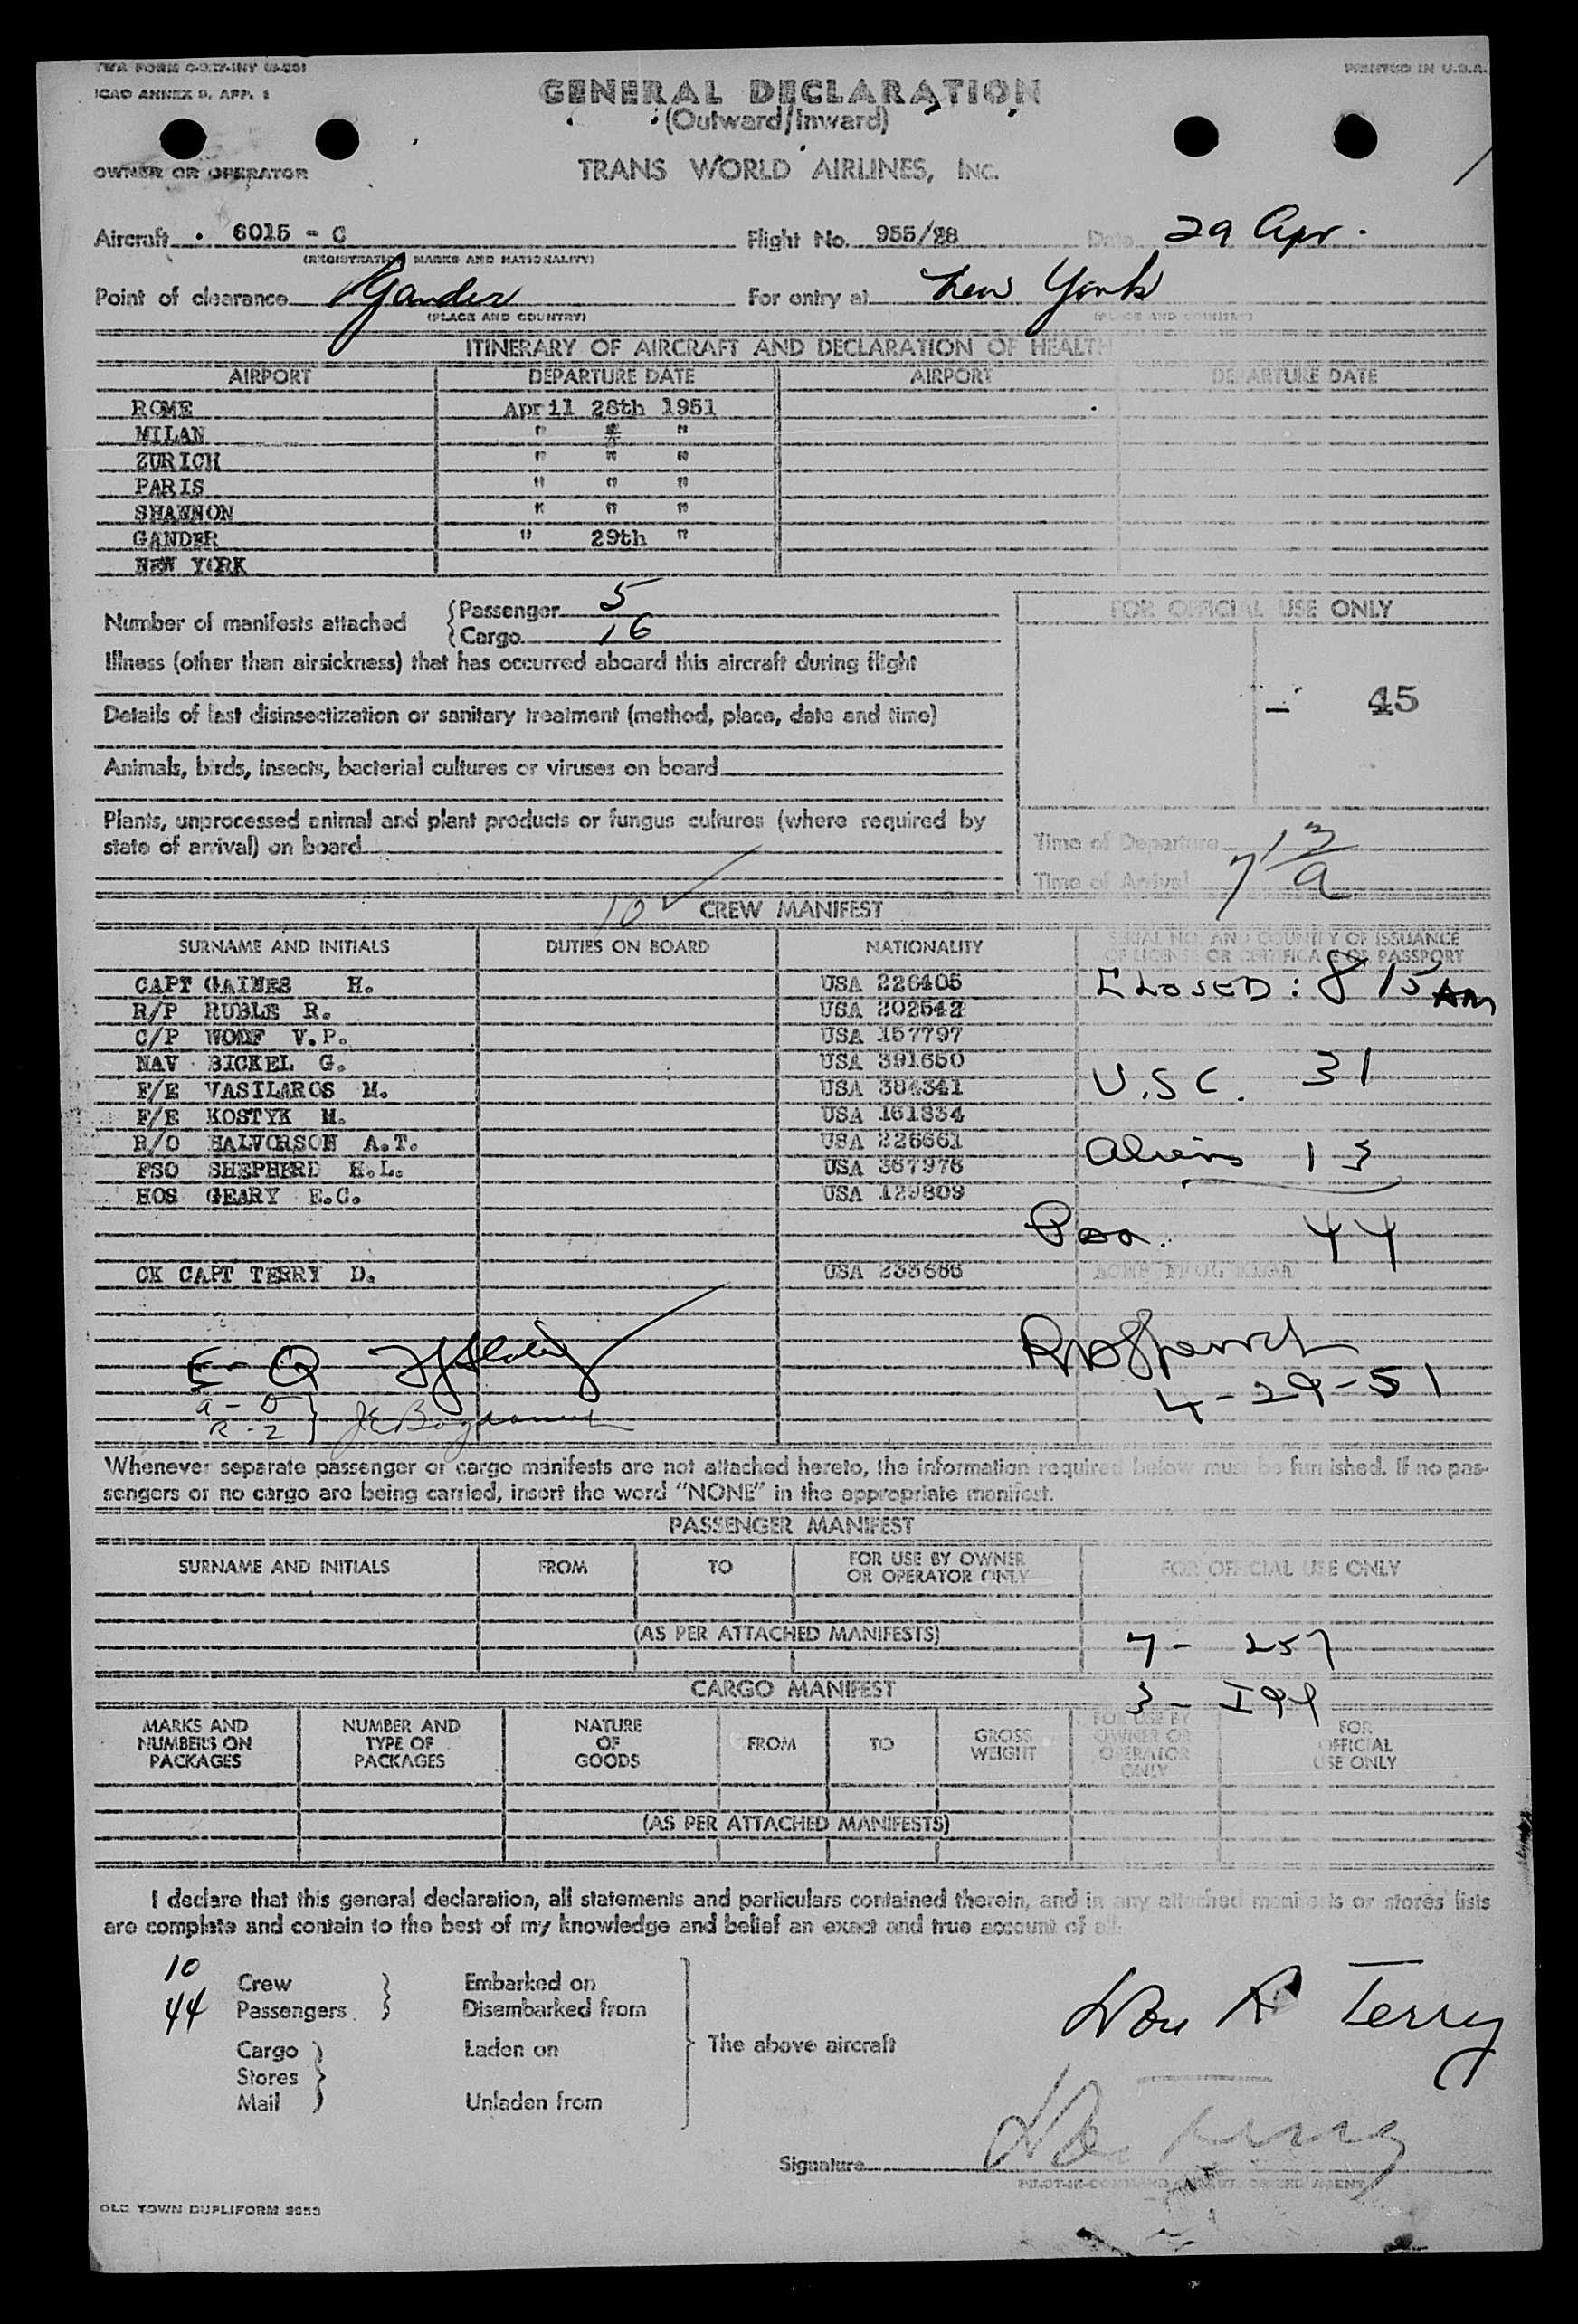 TWA FORM
ICAO ANNEX 9, APP. 1
PRINTED IN U.S.A.
GENERAL DECLARATION
(Outward/Inward)
OWNER OR OPERATOR
TRANS WORLD AIRLINES, INC.
Aircraft 6015 - C Flight No. 955/28 Date 29 Apr.
(REGISTRATION MARKS AND NATIONALITY)
Point of clearance Gander For entry at New York
(PLACE AND COUNTRY) (PLACE AND COUNTRY)
ITINERARY OF AIRCRAFT AND DECLARATION OF HEALTH
AIRPORT DEPARTURE DATE AIRPORT DEPARTURE DATE
ROME April 28th 1951
MILAN " " "
ZURICH " " "
PARIS " " "
SHANNON " " "
GANDER " 29th "
NEW YORK
Number of manifests attached
Passenger 5
Cargo 16
FOR OFFICIAL USE ONLY
Illness (other than airsickness) that has occurred aboard this aircraft during flight
- 45
Details of last disinsectization or sanitary treatment (method, place, date and time)
Animals, birds, insects, bacterial cultures or viruses on board
Plants, unprocessed animal and plant products or fungus cultures (where required by
state of arrival) on board
Time of Departure
Time of Arrival 7 13/a
10 CREW MANIFEST
SURNAME AND INITIALS DUTIES ON BOARD NATIONALITY SERIAL NO. AND COUNTRY OF ISSUANCE
OF LICENSE OR CERTIFICATE OR PASSPORT
CAPT GAINES H. USA 226405 CLOSED: 8 15 AM
R/P RUBLE R. USA 202542
C/P WOLF V.P. USA 157797
NAV BICKEL G. USA 391650 U.S.C. 31
F/E VASILAROS M. USA 384341
F/E KOSTYK M. USA 161834
R/O HALVORSON A.T. USA 226661 Aliens 13
FSO SHEPHERD H.L. USA 367976
HOS GEARY E.C. USA 129809
Pax. 44
CK CAPT TERRY D. USA 233686
E- Q
4-29-51
a - 5
R - 2
Whenever separate passenger or cargo manifests are not attached hereto, the information required below must be furnished. If no pas-
sengers or no cargo are being carried, insert the word "NONE" in the appropriate manifest.
PASSENGER MANIFEST
SURNAME AND INITIALS FROM TO FOR USE BY OWNER
OR OPERATOR ONLY FOR OFFICIAL USE ONLY
(AS PER ATTACHED MANIFESTS)
7 - 257
CARGO MANIFEST
3 - I 99
MARKS AND
NUMBERS ON
PACKAGES
NUMBER AND
TYPE OF
PACKAGES
NATURE
OF
GOODS
FROM
TO
GROSS
WEIGHT
FOR USE BY
OWNER OR
OPERATOR
ONLY
FOR
OFFICIAL
USE ONLY
(AS PER ATTACHED MANIFESTS)
I declare that this general declaration, all statements and particulars contained therein, and in any attached manifests or stores lists
are complete and contain to the best of my knowledge and belief an exact and true account of all:
10 Crew Embarked on
44 Passengers Disembarked from
Cargo Laden on The above aircraft
Stores
Mail Unladen from
Don R Terry
Don Terry
Signature
PILOT-IN-COMMAND AGENT
OLD TOWN DUPLIFORM